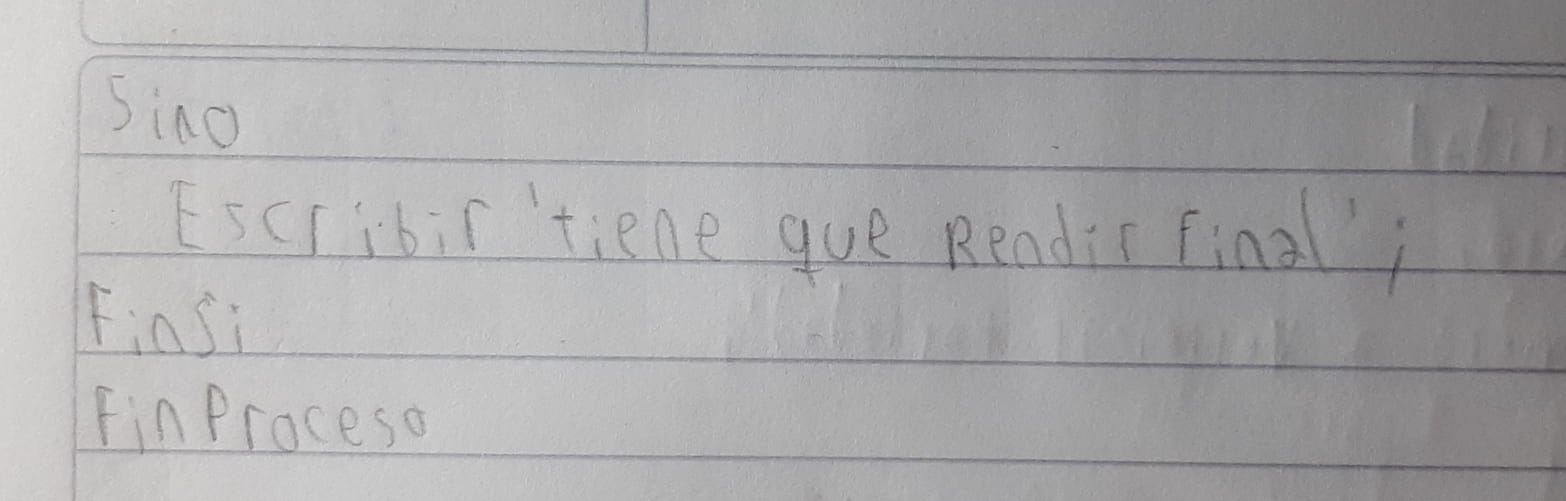 Sino
Escribir 'tiene que Rendir Final';
FinSi
FinProceso